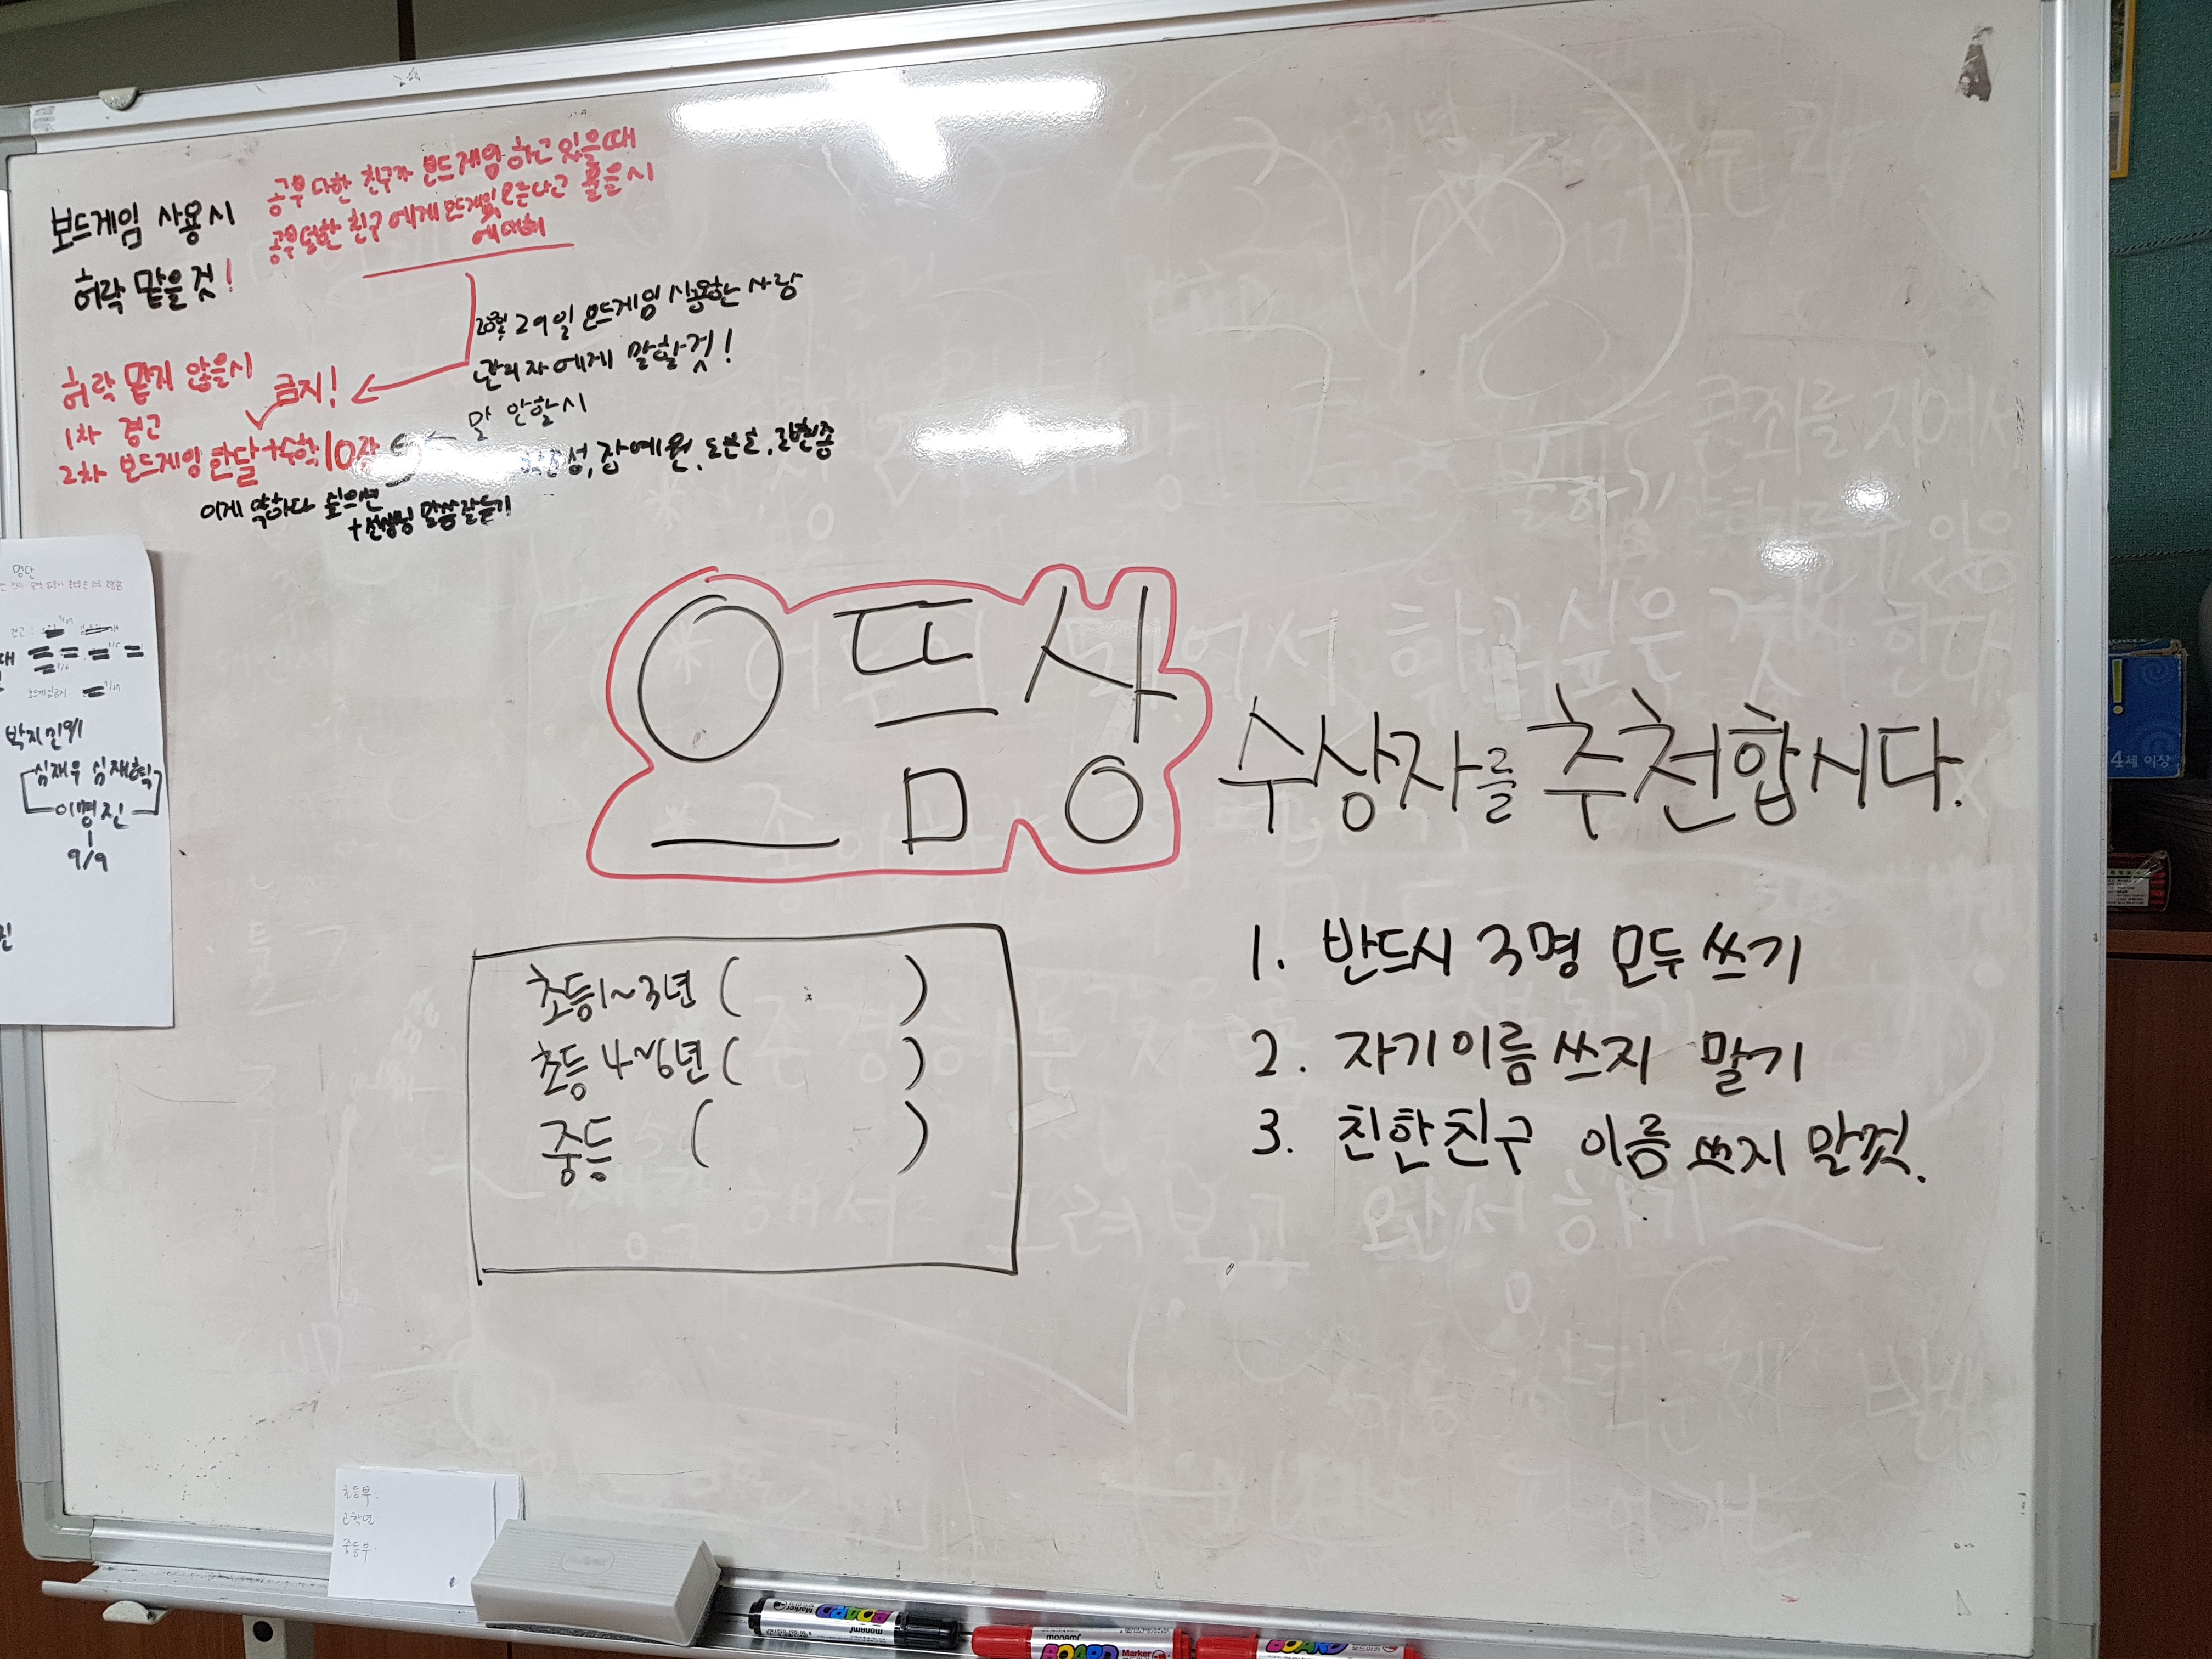 보드게임 사용시
허락 맡을 것!
공부 다한 친구가 보드게임 하고 있을때
공부 덜한 친구에게 보드게임 모른다고 물을시
에 대해
금지!
허락 맡지 않을시
1차 경고
2차 보드게임 한달+수학10장
29일 보드게임 사용한 사람
관리자에게 말할것!
말 안할시
이게 약하다 싶으면
+선생님 말씀 잘듣기
으뜸상
수상자를 추천합시다.
초등1~3년 ( )
초등4~6년 ( )
중등 ( )
1. 반드시 3명 모두 쓰기
2. 자기이름 쓰지 말기
3. 친한친구 이름 쓰지 말것.
명단
경고 :
박지민 9/1
심재우 심재혁
이명진
9/9
초등부
고학년
중등부
4세 이상
Marker
BOARD
monami
monami
BOARD
Marker
BOARD